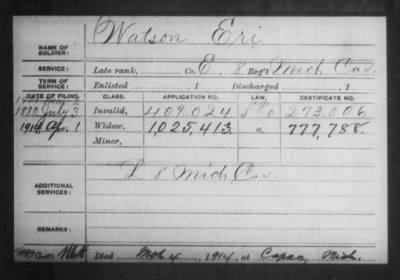 Watson Eri
NAME OF SOLDIER:
SERVICE: Late rank, Co. E. 8 Reg't Mich Cav.
TERM OF SERVICE: Enlisted , 1 Discharged , 1
DATE OF FILING. CLASS. APPLICATION NO. LAW. CERTIFICATE NO.
1880 July 3 Invalid, 409.024 273.006
1914 Apr. 1 Widow, 1,025,413. a 777,788.
Minor,
L 8 Mich Cav
ADDITIONAL SERVICES:
Died Mch 4, 1914, at Capac, Mich.